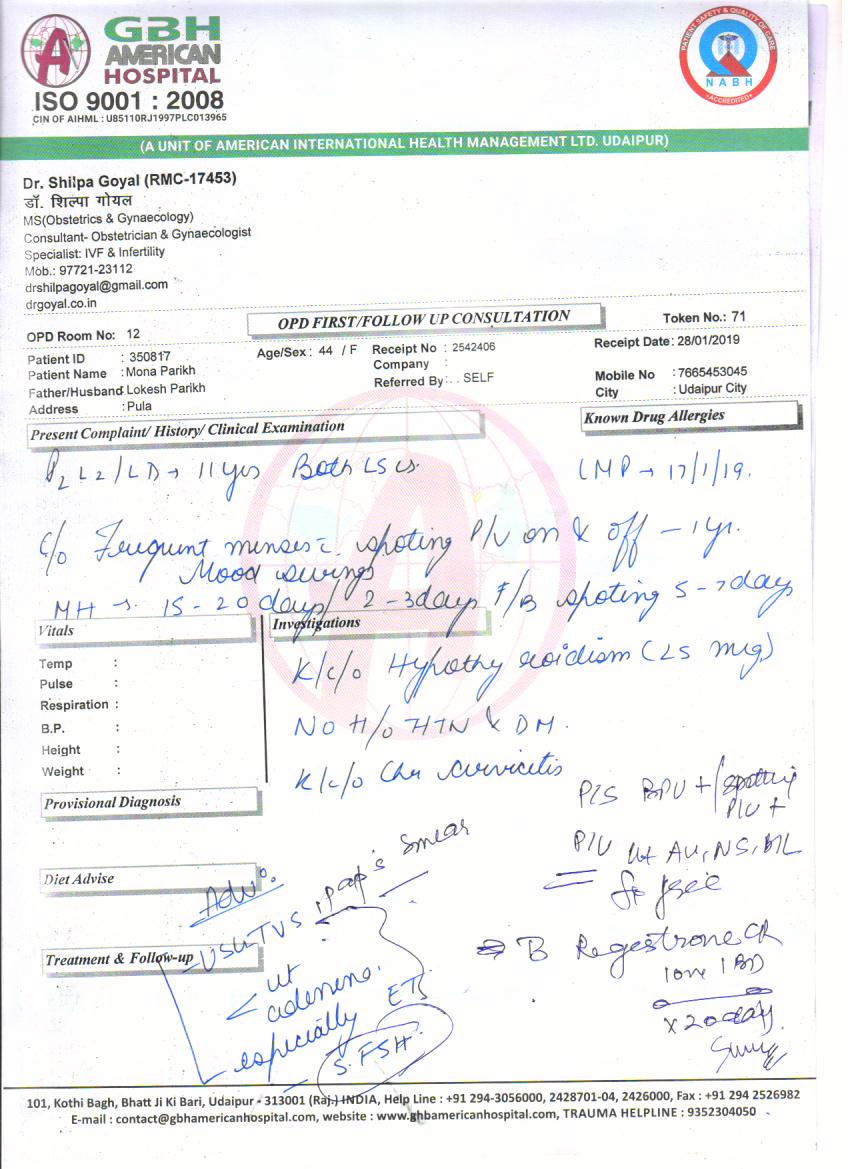 GBH
AMERICAN
HOSPITAL
ISO 9001 : 2008
CIN OF AIHML : U85110RJ1997PLC013965
PATIENT SAFETY & QUALITY OF CARE
NABH
ACCREDITED
(A UNIT OF AMERICAN INTERNATIONAL HEALTH MANAGEMENT LTD. UDAIPUR)
Dr. Shilpa Goyal (RMC-17453)
डॉ. शिल्पा गोयल
MS(Obstetrics & Gynaecology)
Consultant- Obstetrician & Gynaecologist
Specialist: IVF & Infertility
Mob.: 97721-23112
drshilpagoyal@gmail.com
drgoyal.co.in
OPD FIRST/FOLLOW UP CONSULTATION
Token No.: 71
OPD Room No: 12
Receipt Date: 28/01/2019
Patient ID : 350817
Age/Sex : 44 / F
Receipt No : 2542406
Patient Name : Mona Parikh
Company :
Mobile No : 7665453045
Father/Husband Lokesh Parikh
Referred By : . . SELF
City : Udaipur City
Address : Pula
Present Complaint/ History/ Clinical Examination
Known Drug Allergies
P2 L2 / LD → 11 yrs Both LSCS
LMP → 17/1/19.
C/o Frequent menses c spoting P/V on & off - 1 yr.
Mood swings
MH → 15 - 20 days / 2 - 3 days F/B spoting 5 - 7 days
Vitals
Investigations
Temp :
Pulse :
Respiration :
B.P. :
Height :
Weight :
K/c/o Hypothyroidism (25 mcg)
NO H/o HTN & DM.
K/c/o Chr cervicitis
Provisional Diagnosis
P/S BPV + / spotting P/V +
P/V Ut AV, NS, B/L
Fx free
Diet Advise
Adv:
USG-TVS, pap's smear
Treatment & Follow-up
Ut
adenomo.
especially ET
S. FSH.
Regestrone CR
1 BD
x 20 day
101, Kothi Bagh, Bhatt Ji Ki Bari, Udaipur - 313001 (Raj.) INDIA, Help Line : +91 294-3056000, 2428701-04, 2426000, Fax : +91 294 2526982
E-mail : contact@gbhamericanhospital.com, website : www.ghbamericanhospital.com, TRAUMA HELPLINE : 9352304050